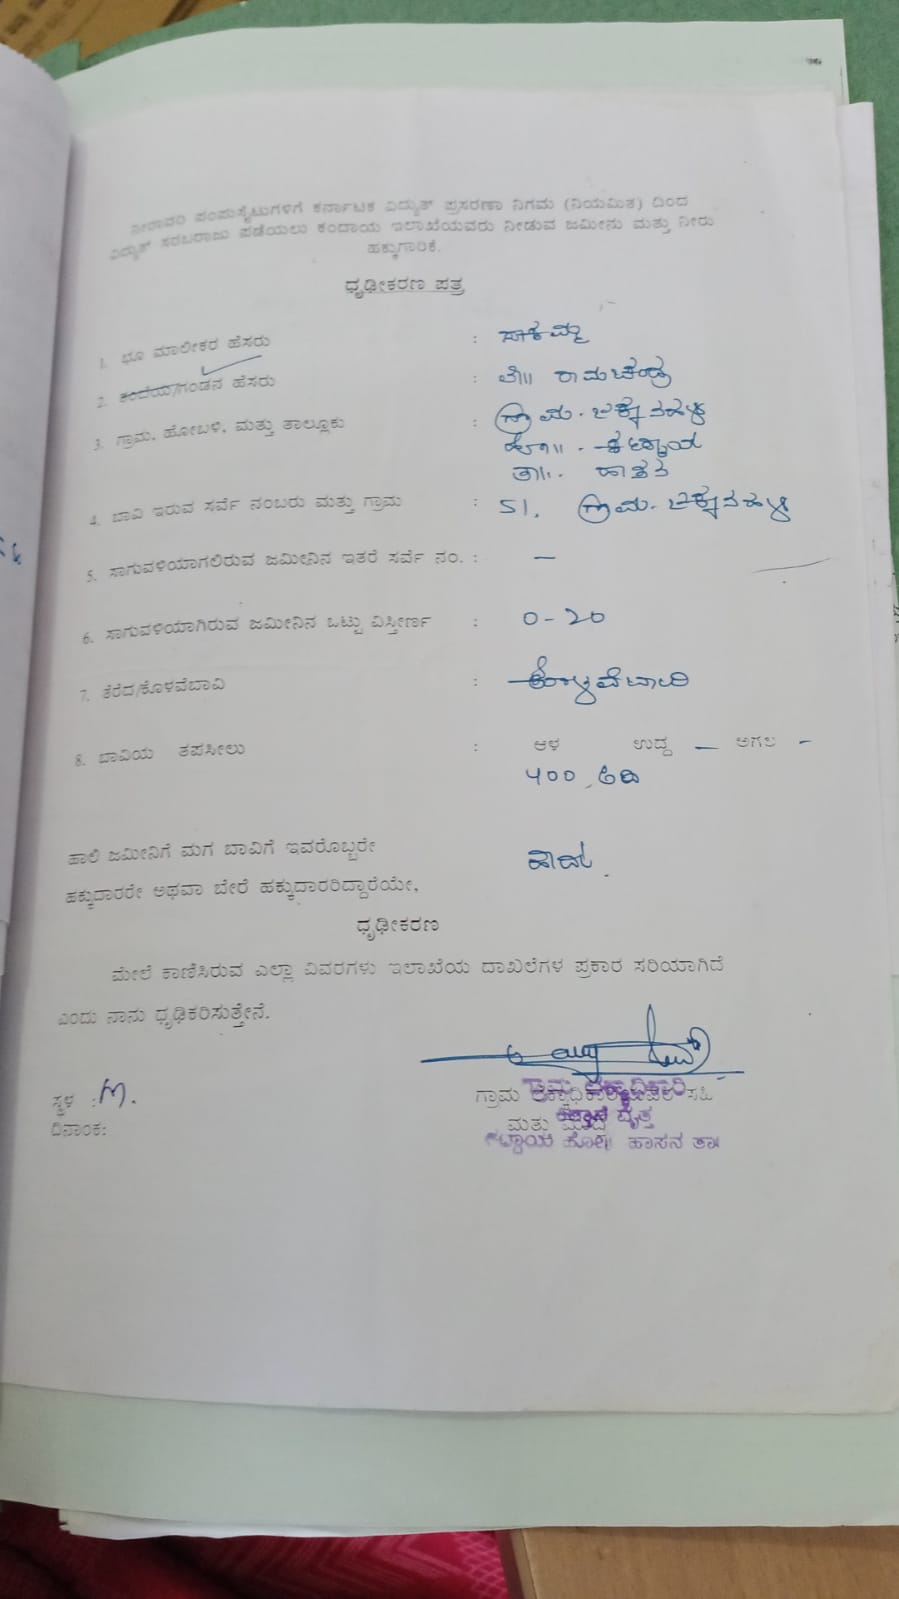 ನೀರಾವರಿ ಪಂಪುಸೈಟುಗಳಿಗೆ ಕರ್ನಾಟಕ ವಿದ್ಯುತ್ ಪ್ರಸರಣಾ ನಿಗಮ (ನಿಯಮಿತ) ದಿಂದ
ವಿದ್ಯುತ್ ಸರಬರಾಜು ಪಡೆಯಲು ಕಂದಾಯ ಇಲಾಖೆಯವರು ನೀಡುವ ಜಮೀನು ಮತ್ತು ನೀರು
ಹಕ್ಕುಗಾರಿಕೆ.
ಧೃಢೀಕರಣ ಪತ್ರ
1. ಭೂ ಮಾಲೀಕರ ಹೆಸರು : ಸಾಕಮ್ಮ
2. ತಂದೆಯ/ಗಂಡನ ಹೆಸರು : ರಾಮಚಂದ್ರ
3. ಗ್ರಾಮ, ಹೋಬಳಿ, ಮತ್ತು ತಾಲ್ಲೂಕು : ಗ್ರಾಮ.
ಹೋ॥. ಕಟ್ಟಾಯ
ತಾ॥. ಹಾಸನ
4. ಬಾವಿ ಇರುವ ಸರ್ವೆ ನಂಬರು ಮತ್ತು ಗ್ರಾಮ : 51. ಗ್ರಾಮ.
5. ಸಾಗುವಳಿಯಾಗಲಿರುವ ಜಮೀನಿನ ಇತರೆ ಸರ್ವೆ ನಂ. : —
6. ಸಾಗುವಳಿಯಾಗಿರುವ ಜಮೀನಿನ ಒಟ್ಟು ವಿಸ್ತೀರ್ಣ : 0-20
7. ತೆರೆದ/ಕೊಳವೆಬಾವಿ : ಕೊಳವೆಬಾವಿ
8. ಬಾವಿಯ ತಪಸೀಲು : ಆಳ ಉದ್ದ — ಅಗಲ -
400 ಅಡಿ
ಹಾಲಿ ಜಮೀನಿಗೆ ಮಗ ಬಾವಿಗೆ ಇವರೊಬ್ಬರೇ
ಹಕ್ಕುದಾರರೇ ಅಥವಾ ಬೇರೆ ಹಕ್ಕುದಾರರಿದ್ದಾರೆಯೇ, ಹೌದು.
ಧೃಢೀಕರಣ
ಮೇಲೆ ಕಾಣಿಸಿರುವ ಎಲ್ಲಾ ವಿವರಗಳು ಇಲಾಖೆಯ ದಾಖಲೆಗಳ ಪ್ರಕಾರ ಸರಿಯಾಗಿದೆ
ಎಂದು ನಾನು ಧೃಢಿಕರಿಸುತ್ತೇನೆ.
ಸ್ಥಳ :
ಗ್ರಾಮ ಸಹಿ
ದಿನಾಂಕ:
ಮತ್ತು
ವೃತ್ತ
ಕಟ್ಟಾಯ ಹೋ॥ ಹಾಸನ ತಾ॥